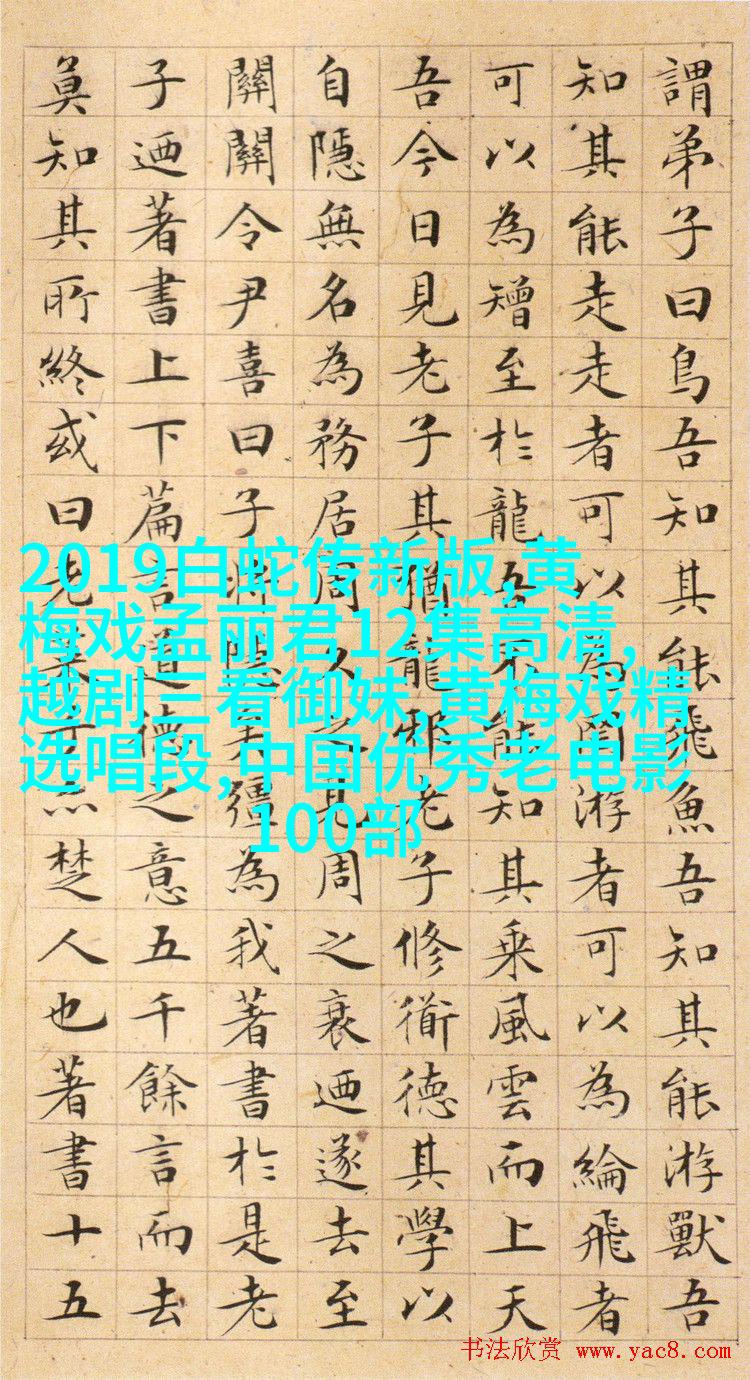 謂弟子曰鳥吾知其能飛魚吾知其能游獸吾
知其能走走者可以為罔游者可以為綸飛者
可以為矰至於龍吾不能知其乘風雲而上天
吾今日見老子其猶龍邪老子修衜德其學以
自隱無名為務居周久之見周之衰迺遂去至
關關令尹喜曰子將隱矣彊為我著書於是老
子迺著書上下篇言道德之意五千餘言而去
莫知其所終或曰老萊子亦楚人也著書十五
2019白蛇传新版,黄
梅戏孟丽君12集高清,
越剧三看御妹,黄梅戏精
选唱段,中国优秀老电影
100部
书法欣赏 www.yac8.com